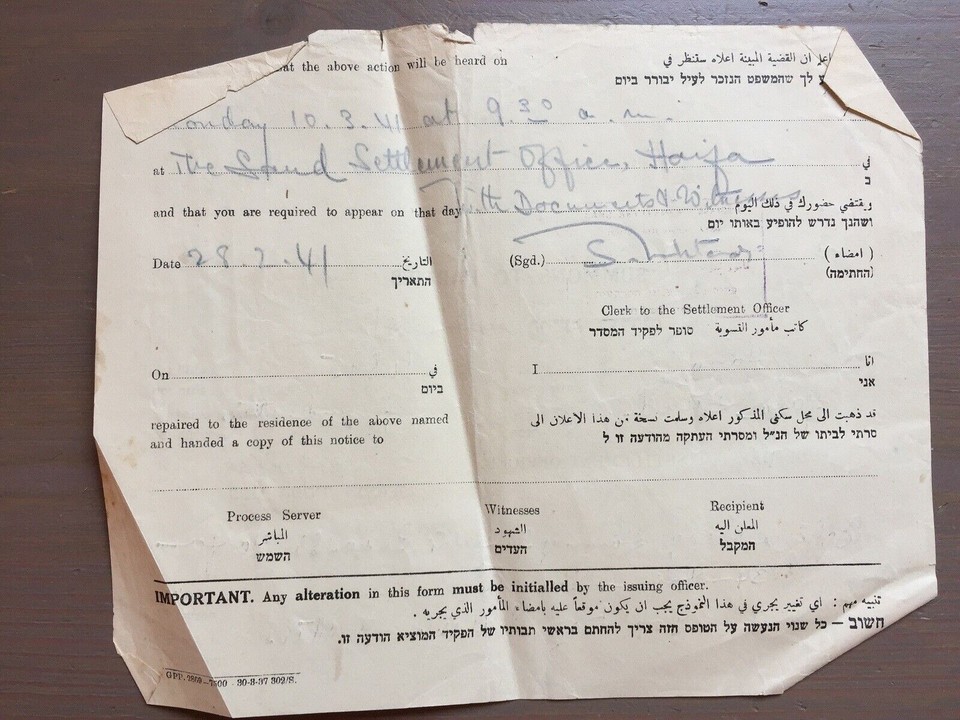 at the above action will be heard on
اعلم ان القضية المبينة اعلاه ستنظر في
לך שהמשפט הנזכר לעיל יבורר ביום
onday 10.3.41 at 9.30 a.m.
at The Land Settlement Office, Haifa
في
ב
with Documents & Witnesses
and that you are required to appear on that day
ويقتضي حضورك في ذلك اليوم
ושהנך נדרש להופיע באותו יום
Date 28.2.41 التاريخ
התאריך
(Sgd.) ( امضاء )
(החתימה)
Clerk to the Settlement Officer
كاتب مأمور التسوية סופר לפקיד המסדר
On في
ביום
I انا
אני
repaired to the residence of the above named
and handed a copy of this notice to
قد ذهبت الى محل سكنى المذكور اعلاه وسلمت نسخة من هذا الاعلان الى
סרתי לביתו של הנ״ל ומסרתי העתקה מהודעה זו ל
Process Server
المباشر
השמש
Witnesses
الشهود
העדים
Recipient
المعلن اليه
המקבל
IMPORTANT. Any alteration in this form must be initialled by the issuing officer.
تنبيه مهم : اي تغيير يجري في هذا النموذج يجب ان يكون موقعاً عليه بامضاء المأمور الذي يجريه .
חשוב — כל שנוי הנעשה על הטופס הזה צריך להחתם בראשי תבותיו של הפקיד המוציא הודעה זו.
GPP. 2869—7500 30-8-37 302/S.